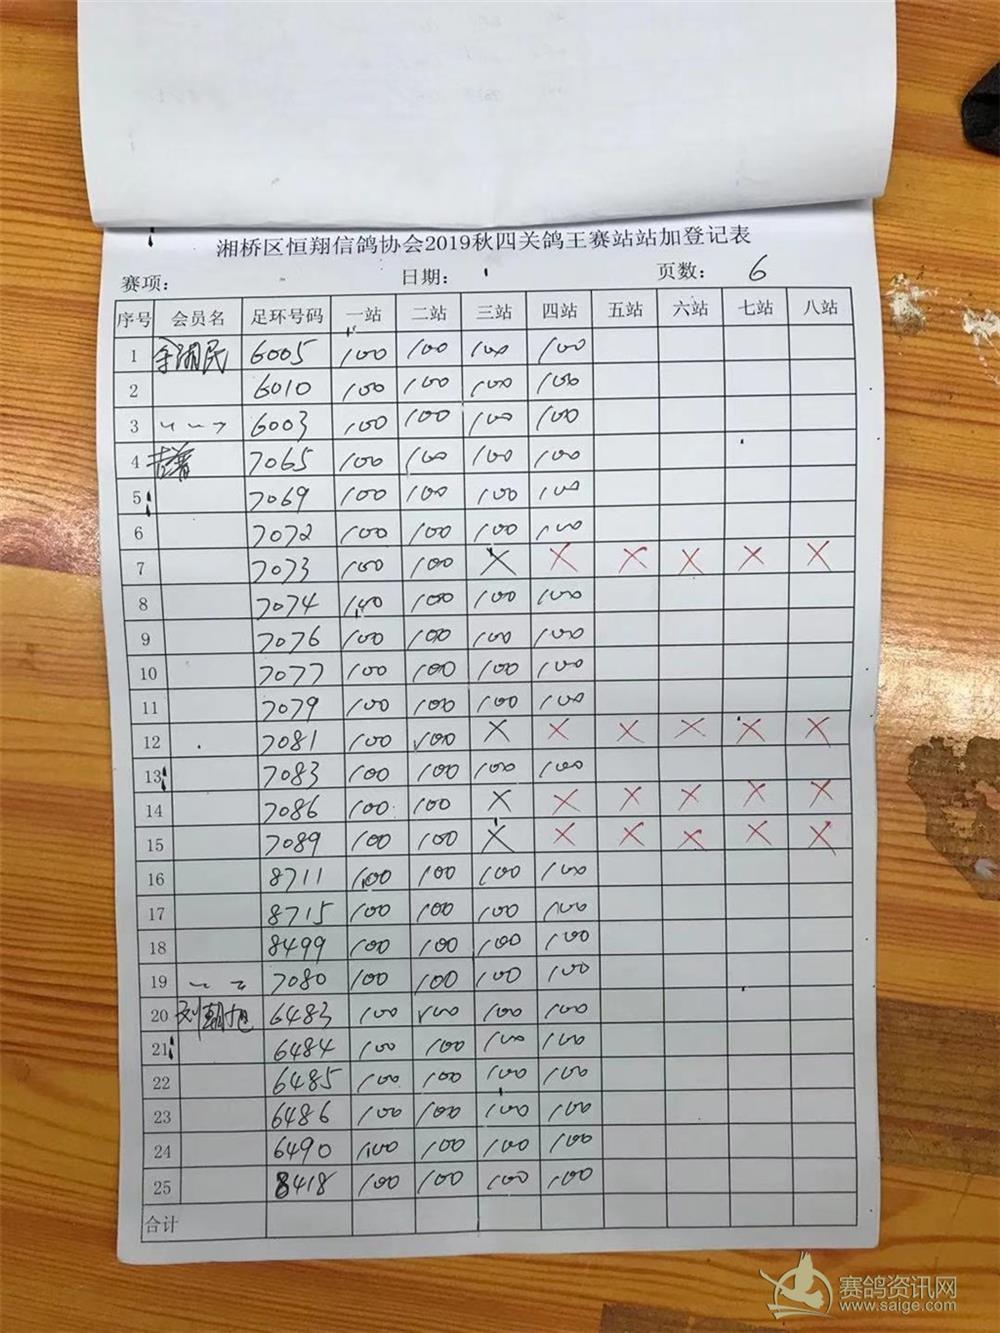 湘桥区恒翔信鸽协会2019秋四关鸽王赛站站加登记表
赛项: 日期: 页数: 6
序号 会员名 足环号码 一站 二站 三站 四站 五站 六站 七站 八站
1 6005 100 100 100 100
2 6010 100 100 100 100
3 6003 100 100 100 100
4 7065 100 100 100 100
5 7069 100 100 100 100
6 7072 100 100 100 100
7 7073 100 100 X X X X X X
8 7074 100 100 100 100
9 7076 100 100 100 100
10 7077 100 100 100 100
11 7079 100 100 100 100
12 7081 100 100 X X X X X X
13 7083 100 100 100 100
14 7086 100 100 X X X X X X
15 7089 100 100 X X X X X X
16 8711 100 100 100 100
17 8715 100 100 100 100
18 8499 100 100 100 100
19 7080 100 100 100 100
20 刘朝旭 6483 100 100 100 100
21 6484 100 100 100 100
22 6485 100 100 100 100
23 6486 100 100 100 100
24 6490 100 100 100 100
25 8418 100 100 100 100
合计
赛鸽资讯网
www.saige.com